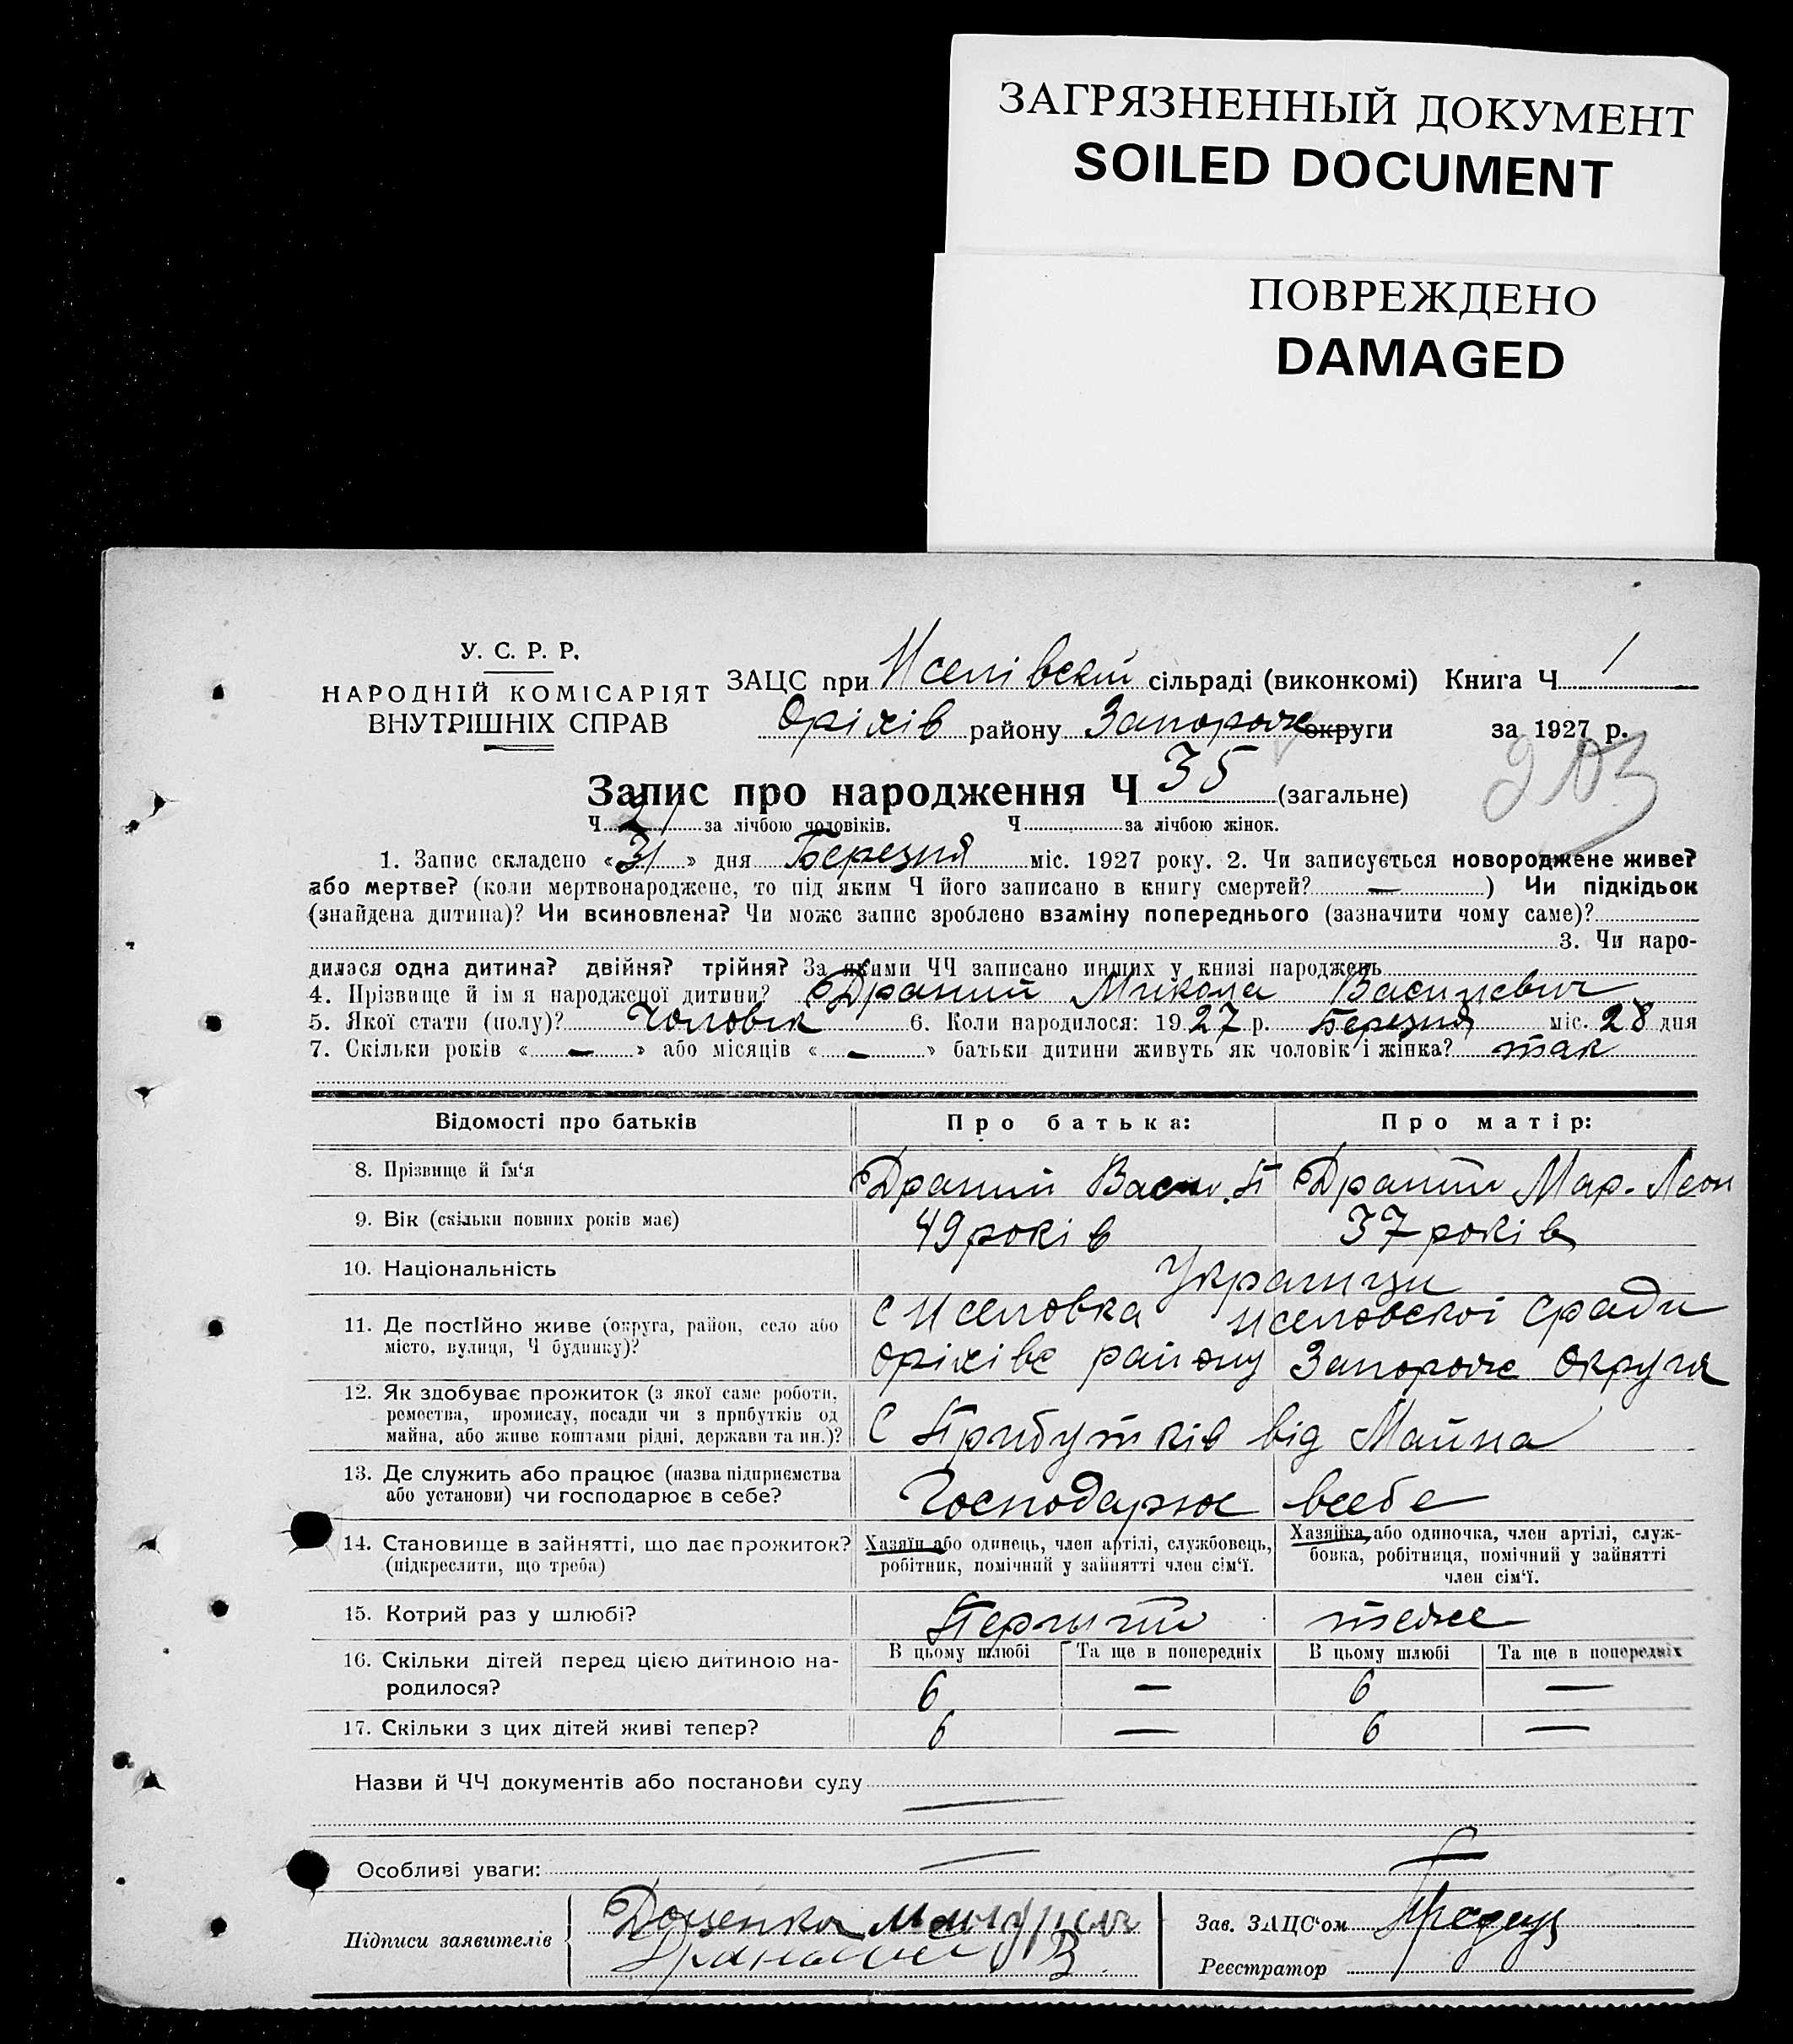 ЗАГРЯЗНЕННЫЙ ДОКУМЕНТ
SOILED DOCUMENT
ПОВРЕЖДЕНО
DAMAGED
У. С. Р. Р.
НАРОДНІЙ КОМІСАРІЯТ
ВНУТРІШНІХ СПРАВ
ЗАЦС при сільраді (виконкомі) Книга Ч 1
Оріхів району Запорож округи за 1927 р.
203
Запис про народження Ч 35 (загальне)
Ч 21 за лічбою чоловіків. Ч за лічбою жінок.
1. Запис складено «31» дня Березня міс. 1927 року. 2. Чи записується новороджене живе?
або мертве? (коли мертвонароджене, то під яким Ч його записано в книгу смертей? — ) Чи підкідьок
(знайдена дитина)? Чи всиновлена? Чи може запис зроблено взаміну попереднього (зазначити чому саме)?
3. Чи наро-
дилася одна дитина? двійня? трійня? За якими ЧЧ записано инших у книзі народжень
4. Прізвище й ім я народженої дитини? Драний Микола Василевич
5. Якої стати (полу)? Чоловік 6. Коли народилося: 1927 р. Березня міс. 28 дня
7. Скільки років « — » або місяців « — » батьки дитини живуть як чоловік і жінка? так
Відомості про батьків
Про батька:
Про матір:
8. Прізвище й ім‘я
Драний Васил. П
Драний Мар. Леон
9. Вік (скільки повних років має)
49 років
37 років
10. Національність
Украинци
11. Де постійно живе (округа, район, село або
місто, вулиця, Ч будинку)?
Оріхівс району Запорож Округи
12. Як здобуває прожиток (з якої саме роботи,
ремества, промислу, посади чи з прибутків од
майна, або живе коштами рідні, держави та ин.)?
С Прибутків від Майна
13. Де служить або працює (назва підприємства
або установи) чи господарює в себе?
Господарює всебе
14. Становище в зайнятті, що дає прожиток?
(підкреслити, що треба)
Хазяїн або одинець, член артілі, службовець,
робітник, помічний у зайнятті член сім‘ї.
Хазяйка або одиночка, член артілі, служ-
бовка, робітниця, помічний у зайнятті
член сім‘ї.
15. Котрий раз у шлюбі?
Перший
теже
16. Скільки дітей перед цією дитиною на-
родилося?
В цьому шлюбі
Та ще в попередніх
В цьому шлюбі
Та ще в попередніх
6 — 6 —
17. Скільки з цих дітей живі тепер?
6 — 6 —
Назви й ЧЧ документів або постанови суду
Особливі уваги:
Підписи заявителів
Доценко
Зав. ЗАЦС‘ом
Реєстратор